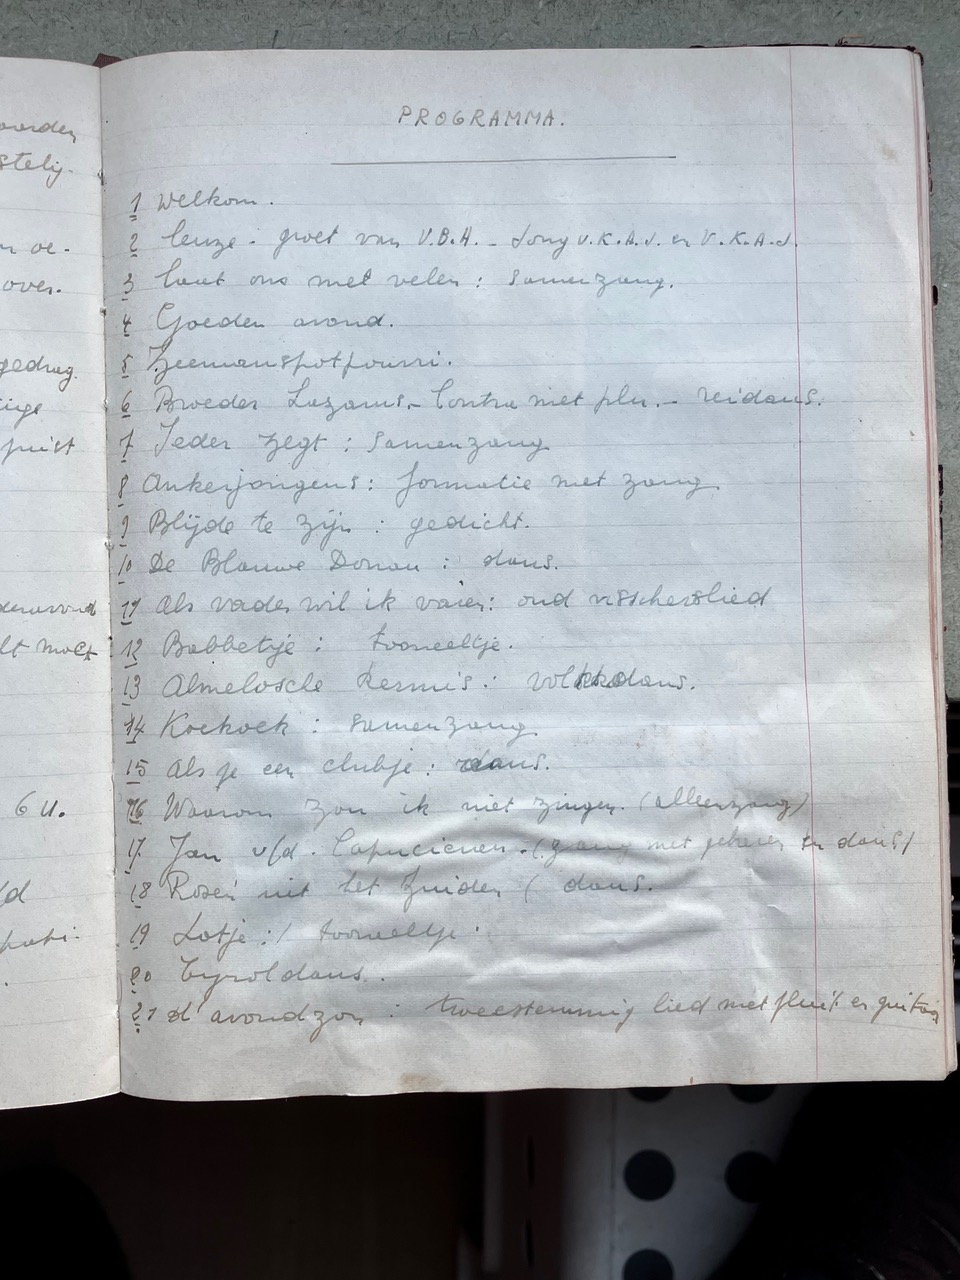 PROGRAMMA.
1 Welkom.
2 leuze - groet van V.B.H. - Jong V.K.A.J. en V.K.A.J.
3 laat ons met velen : Samenzang.
4 Goeden avond.
5 Zeemanspotpourri.
6 Broeder Lazarus. - Contra met plu. - reidans.
7 Ieder zegt : Samenzang
8 Ankerjongens : formatie met zang
9 Blijde te zijn : gedicht.
10 De Blauwe Donau : dans.
11 Als vader wil ik varen : oud visscherslied
12 Babbetje : tooneeltje.
13 Almelosche Kermis : volksdans.
14 Koekoek : samenzang
15 Als je een clubje : dans.
16 Waarom zou ik niet zingen. (alleenzang)
17. Jan v/d. Capucienen. (zang met gebaren en dans)
18 Rosen uit het Zuiden ( dans.
19 Lotje : / tooneeltje.
20 Tyroldans.
21 d' avondzon : tweestemmig lied met fluit en guitaar
oorden
stelig.
n oe-
over.
gedrag
juist
lt moet
6 u.
/d